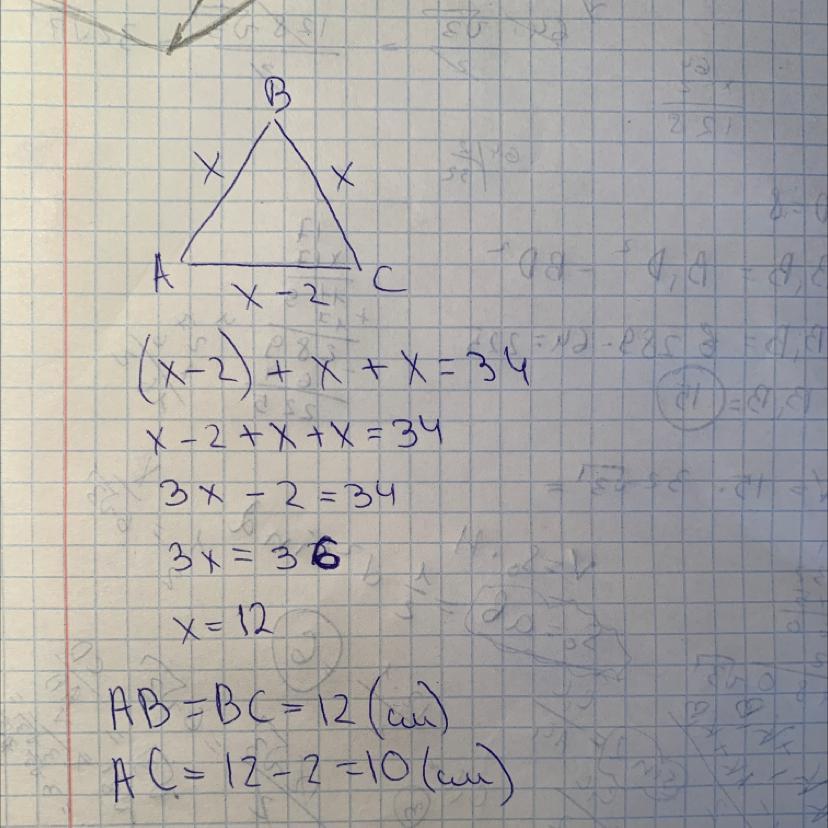 B
x x
A C
x - 2
(x-2) + x + x = 34
x - 2 + x + x = 34
3x - 2 = 34
3x = 36
x = 12
AB = BC = 12 (см)
AC = 12 - 2 = 10 (см)